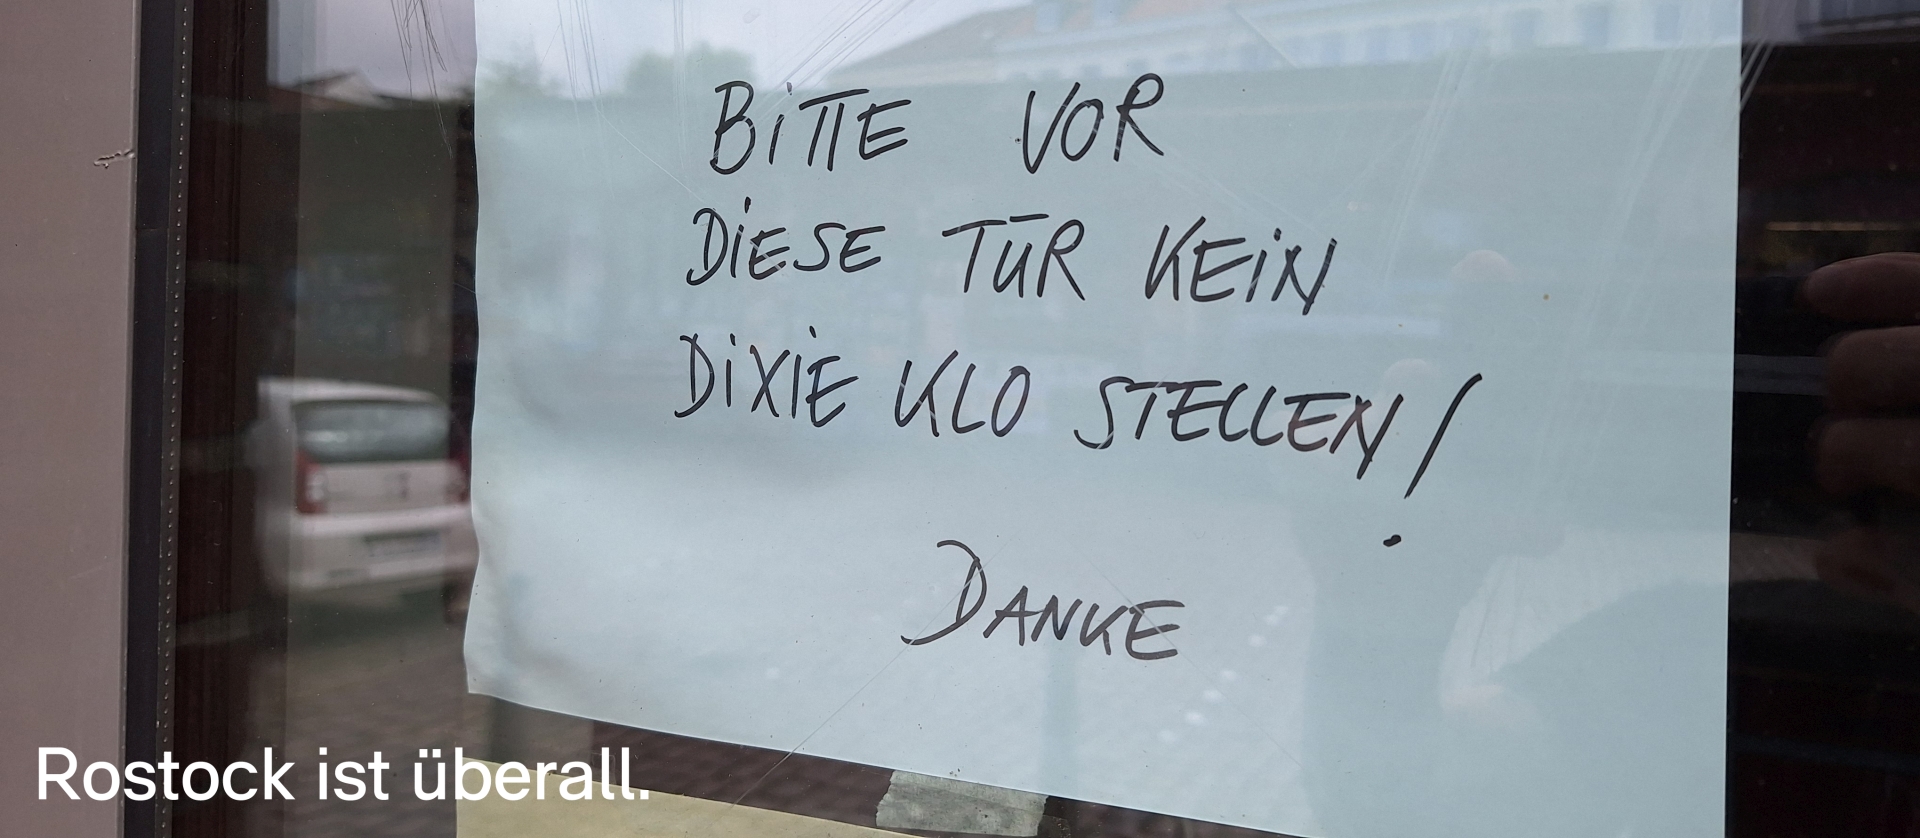 BITTE VOR
DIESE TÜR KEIN
DIXIE KLO STELLEN!
DANKE
Rostock ist überall.